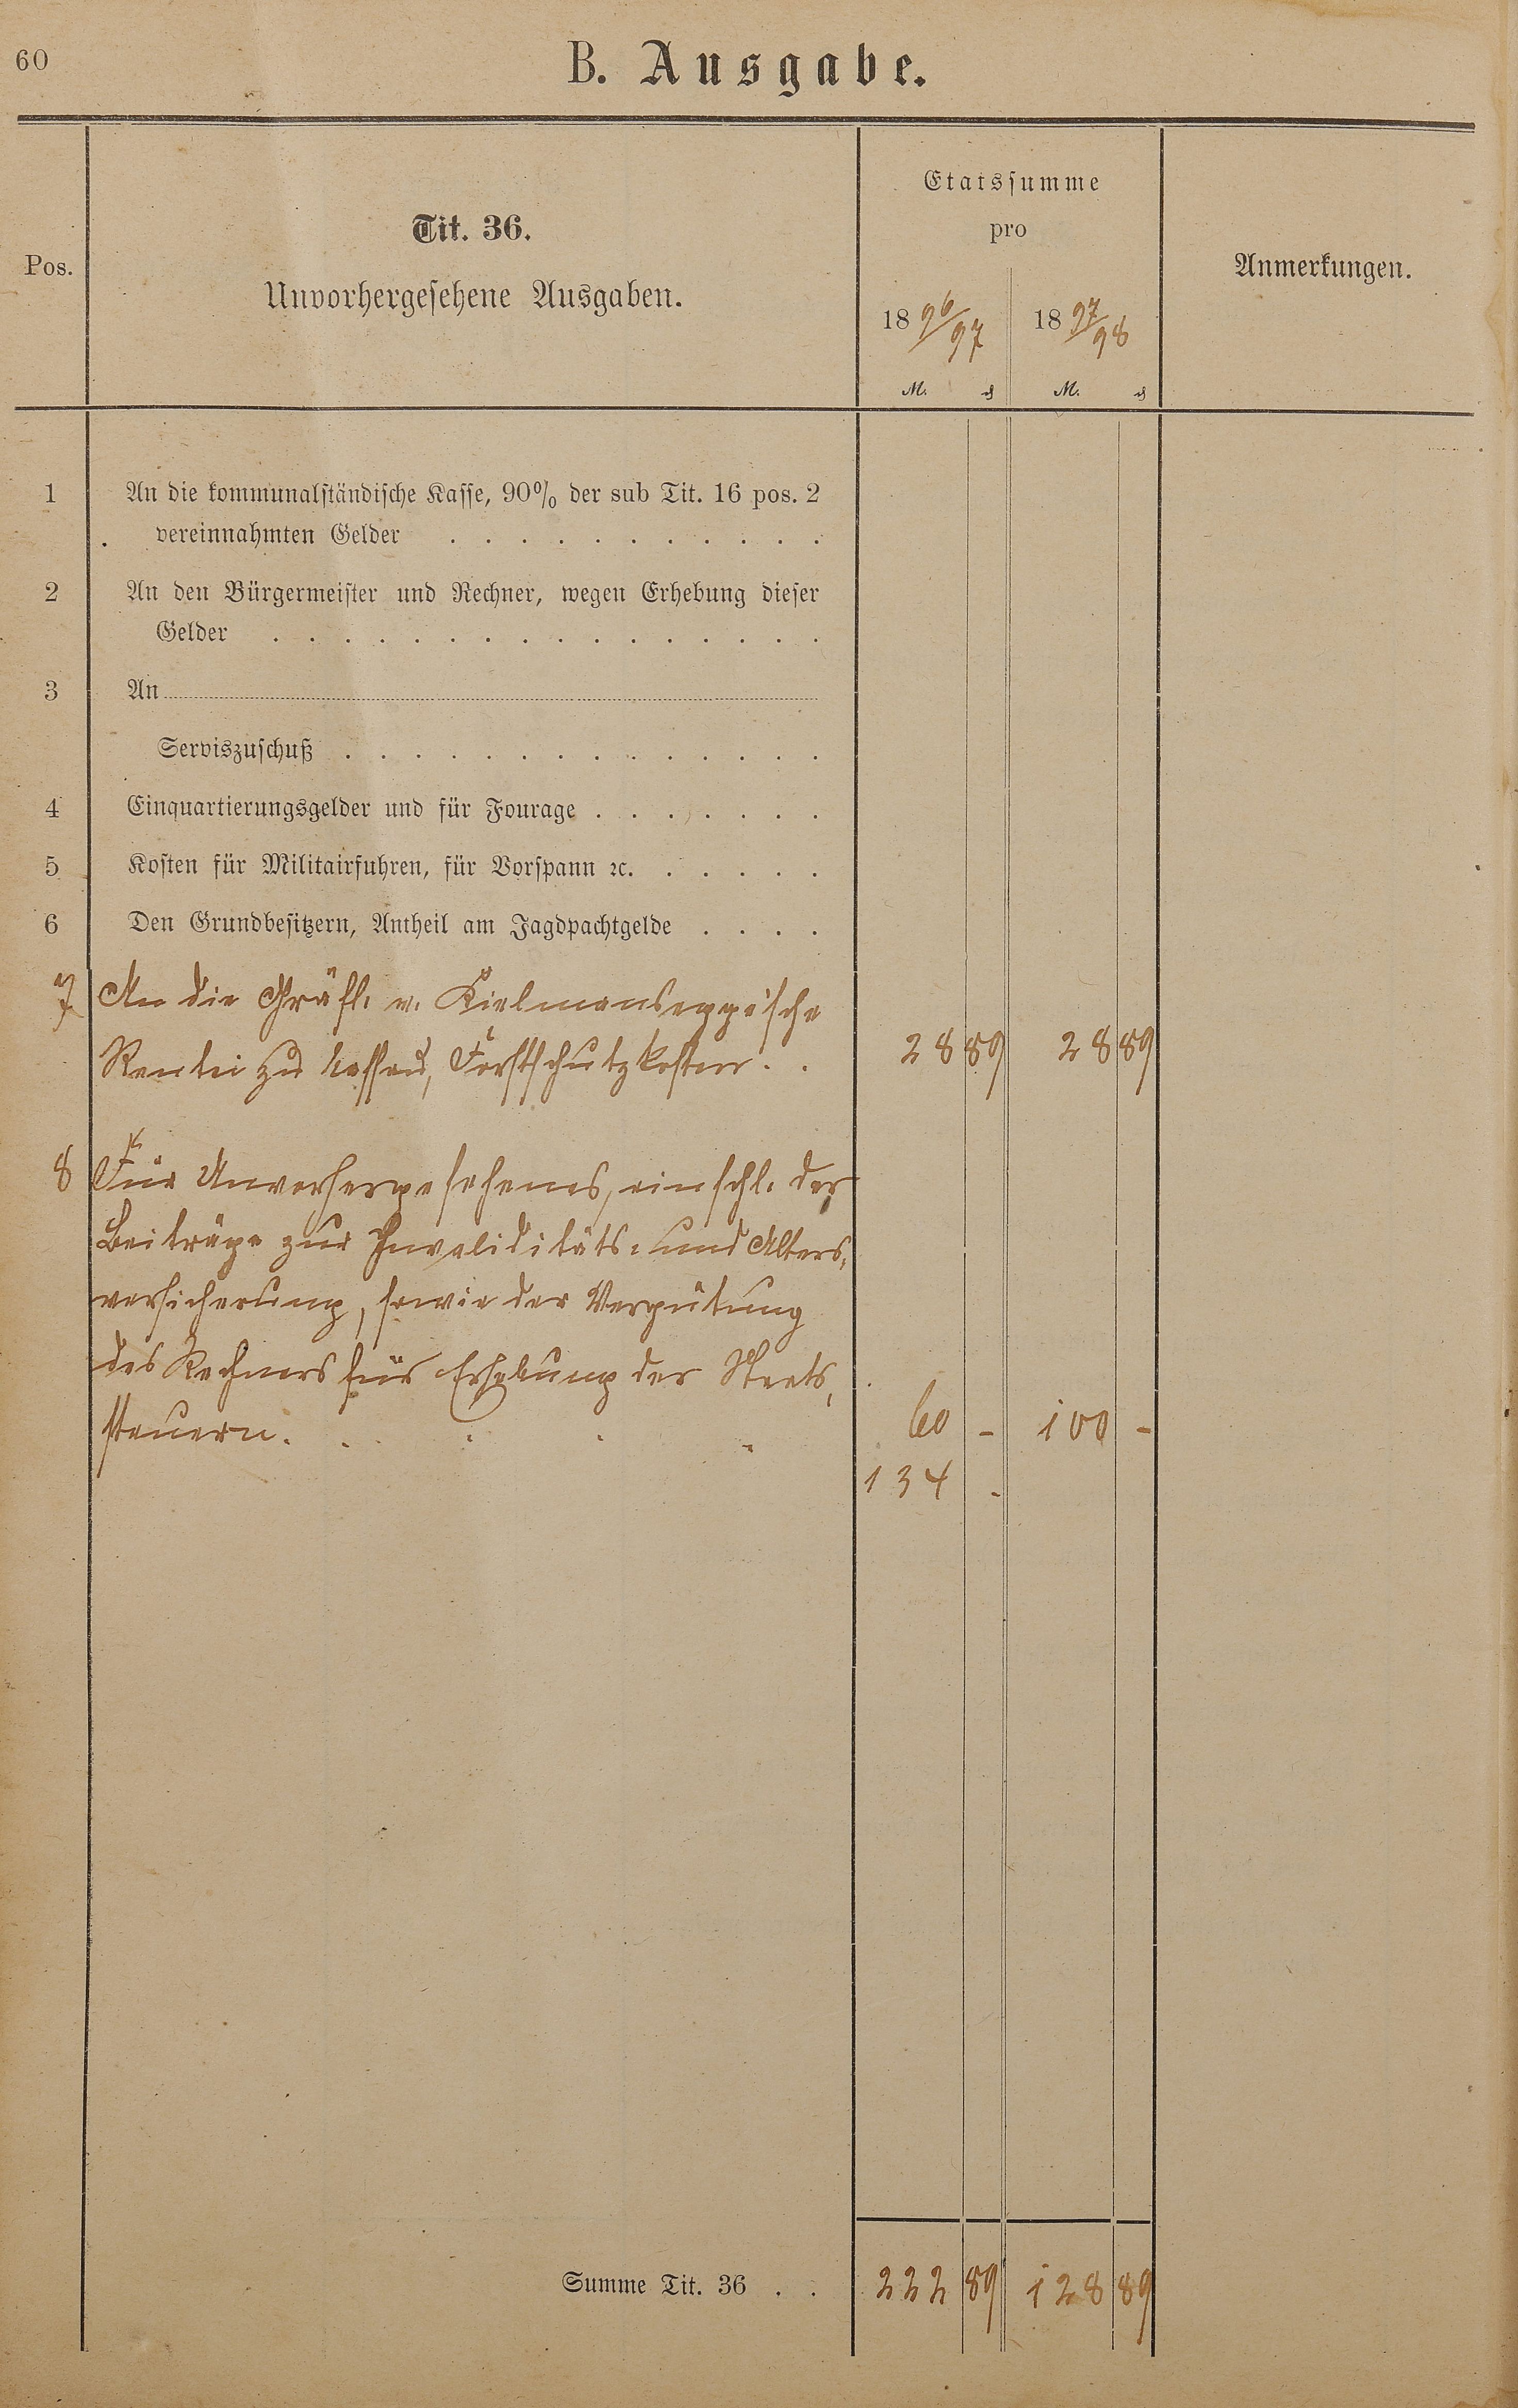 60
B. Ausgabe.
Pos.
Tit. 36.
Unvorhergesehene Ausgaben.
Etatssumme
pro
18 96/97 18 97/98
M. ₰ M. ₰
Anmerkungen.
1 An die kommunalständische Kasse, 90% der sub Tit. 16 pos. 2
vereinnahmten Gelder . . . . . . . . . . .
2 An den Bürgermeister und Rechner, wegen Erhebung dieser
Gelder . . . . . . . . . . . . . . . .
3 An
Serviszuschuß . . . . . . . . . . . . . .
4 Einquartierungsgelder und für Fourage . . . . . . .
5 Kosten für Militairfuhren, für Vorspann ꝛc. . . . . .
6 Den Grundbesitzern, Antheil am Jagdpachtgelde . . . .
7 An die Gräfl. v. Kielmanseggesche
Rentei zu Nassau, Forstschutzkosten . . 28 89 28 89
8 Für Unvorhergesehenes, einschl. der
Beiträge zur Invaliditäts- und Alters-
versicherung, sowie der Vergütung
des Rechners für Erhebung der Staats-
steuern. . . . . 60 - 100 -
134 -
Summe Tit. 36 . . 222 89 128 89